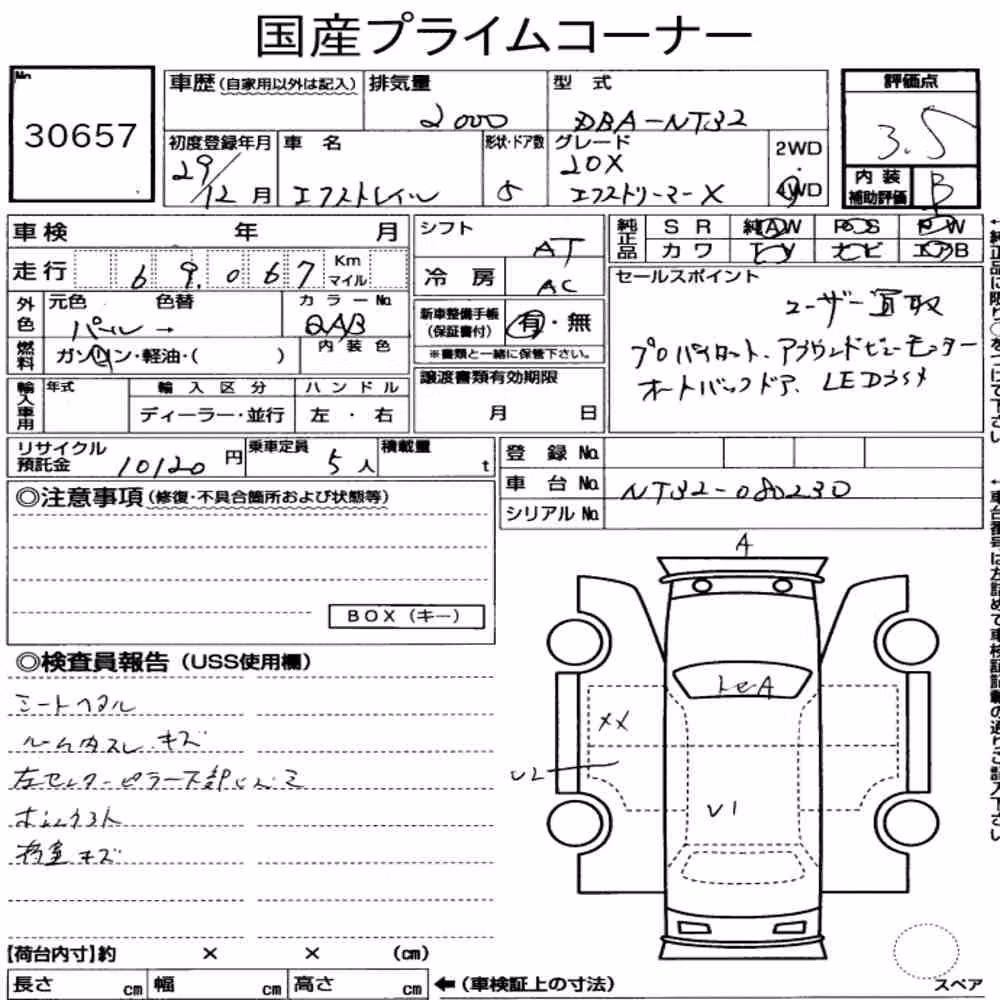 国産プライムコーナー
No.
30657
車歴(自家用以外は記入)
排気量
2000
型式
DBA-NT32
評価点
3.5
内装
補助評価
B
初度登録年月
29/12月
車名
エクストレイル
形状・ドア数
5
グレード
20X
エクストリーマーX
2WD
4WD
車検 年 月
走行 69,067 Km
マイル
外色
元色 色替
パール →
カラーNo.
QAB
内装色
燃料
ガソリン・軽油・( )
輸入車用
年式
輸入区分
ディーラー・並行
ハンドル
左・右
シフト
AT
冷房
AC
新車整備手帳
(保証書付)
有・無
※書類と一緒に保管下さい。
譲渡書類有効期限
月 日
純正品
SR 純AW PS PW
カワ TV ナビ エアB
セールスポイント
ユーザー買取
プロパイロット、アラウンドビューモニター
オートバックドア、LEDライト
←純正品に限り○をつけて下さい
リサイクル
預託金
10120円
乗車定員
5人
積載量
t
登録No.
車台No.
NT32-080230
シリアルNo.
←車台番号は左詰めで車検証記載の通りご記入下さい
◎注意事項(修復・不具合箇所および状態等)
BOX(キー)
◎検査員報告(USS使用欄)
シートヘタル
ルーム内スレ、キズ
左センターピラー下部
荷室キズ
A
XX
U2
U1
【荷台内寸】約 × × (cm)
長さ cm 幅 cm 高さ cm
←(車検証上の寸法)
スペア